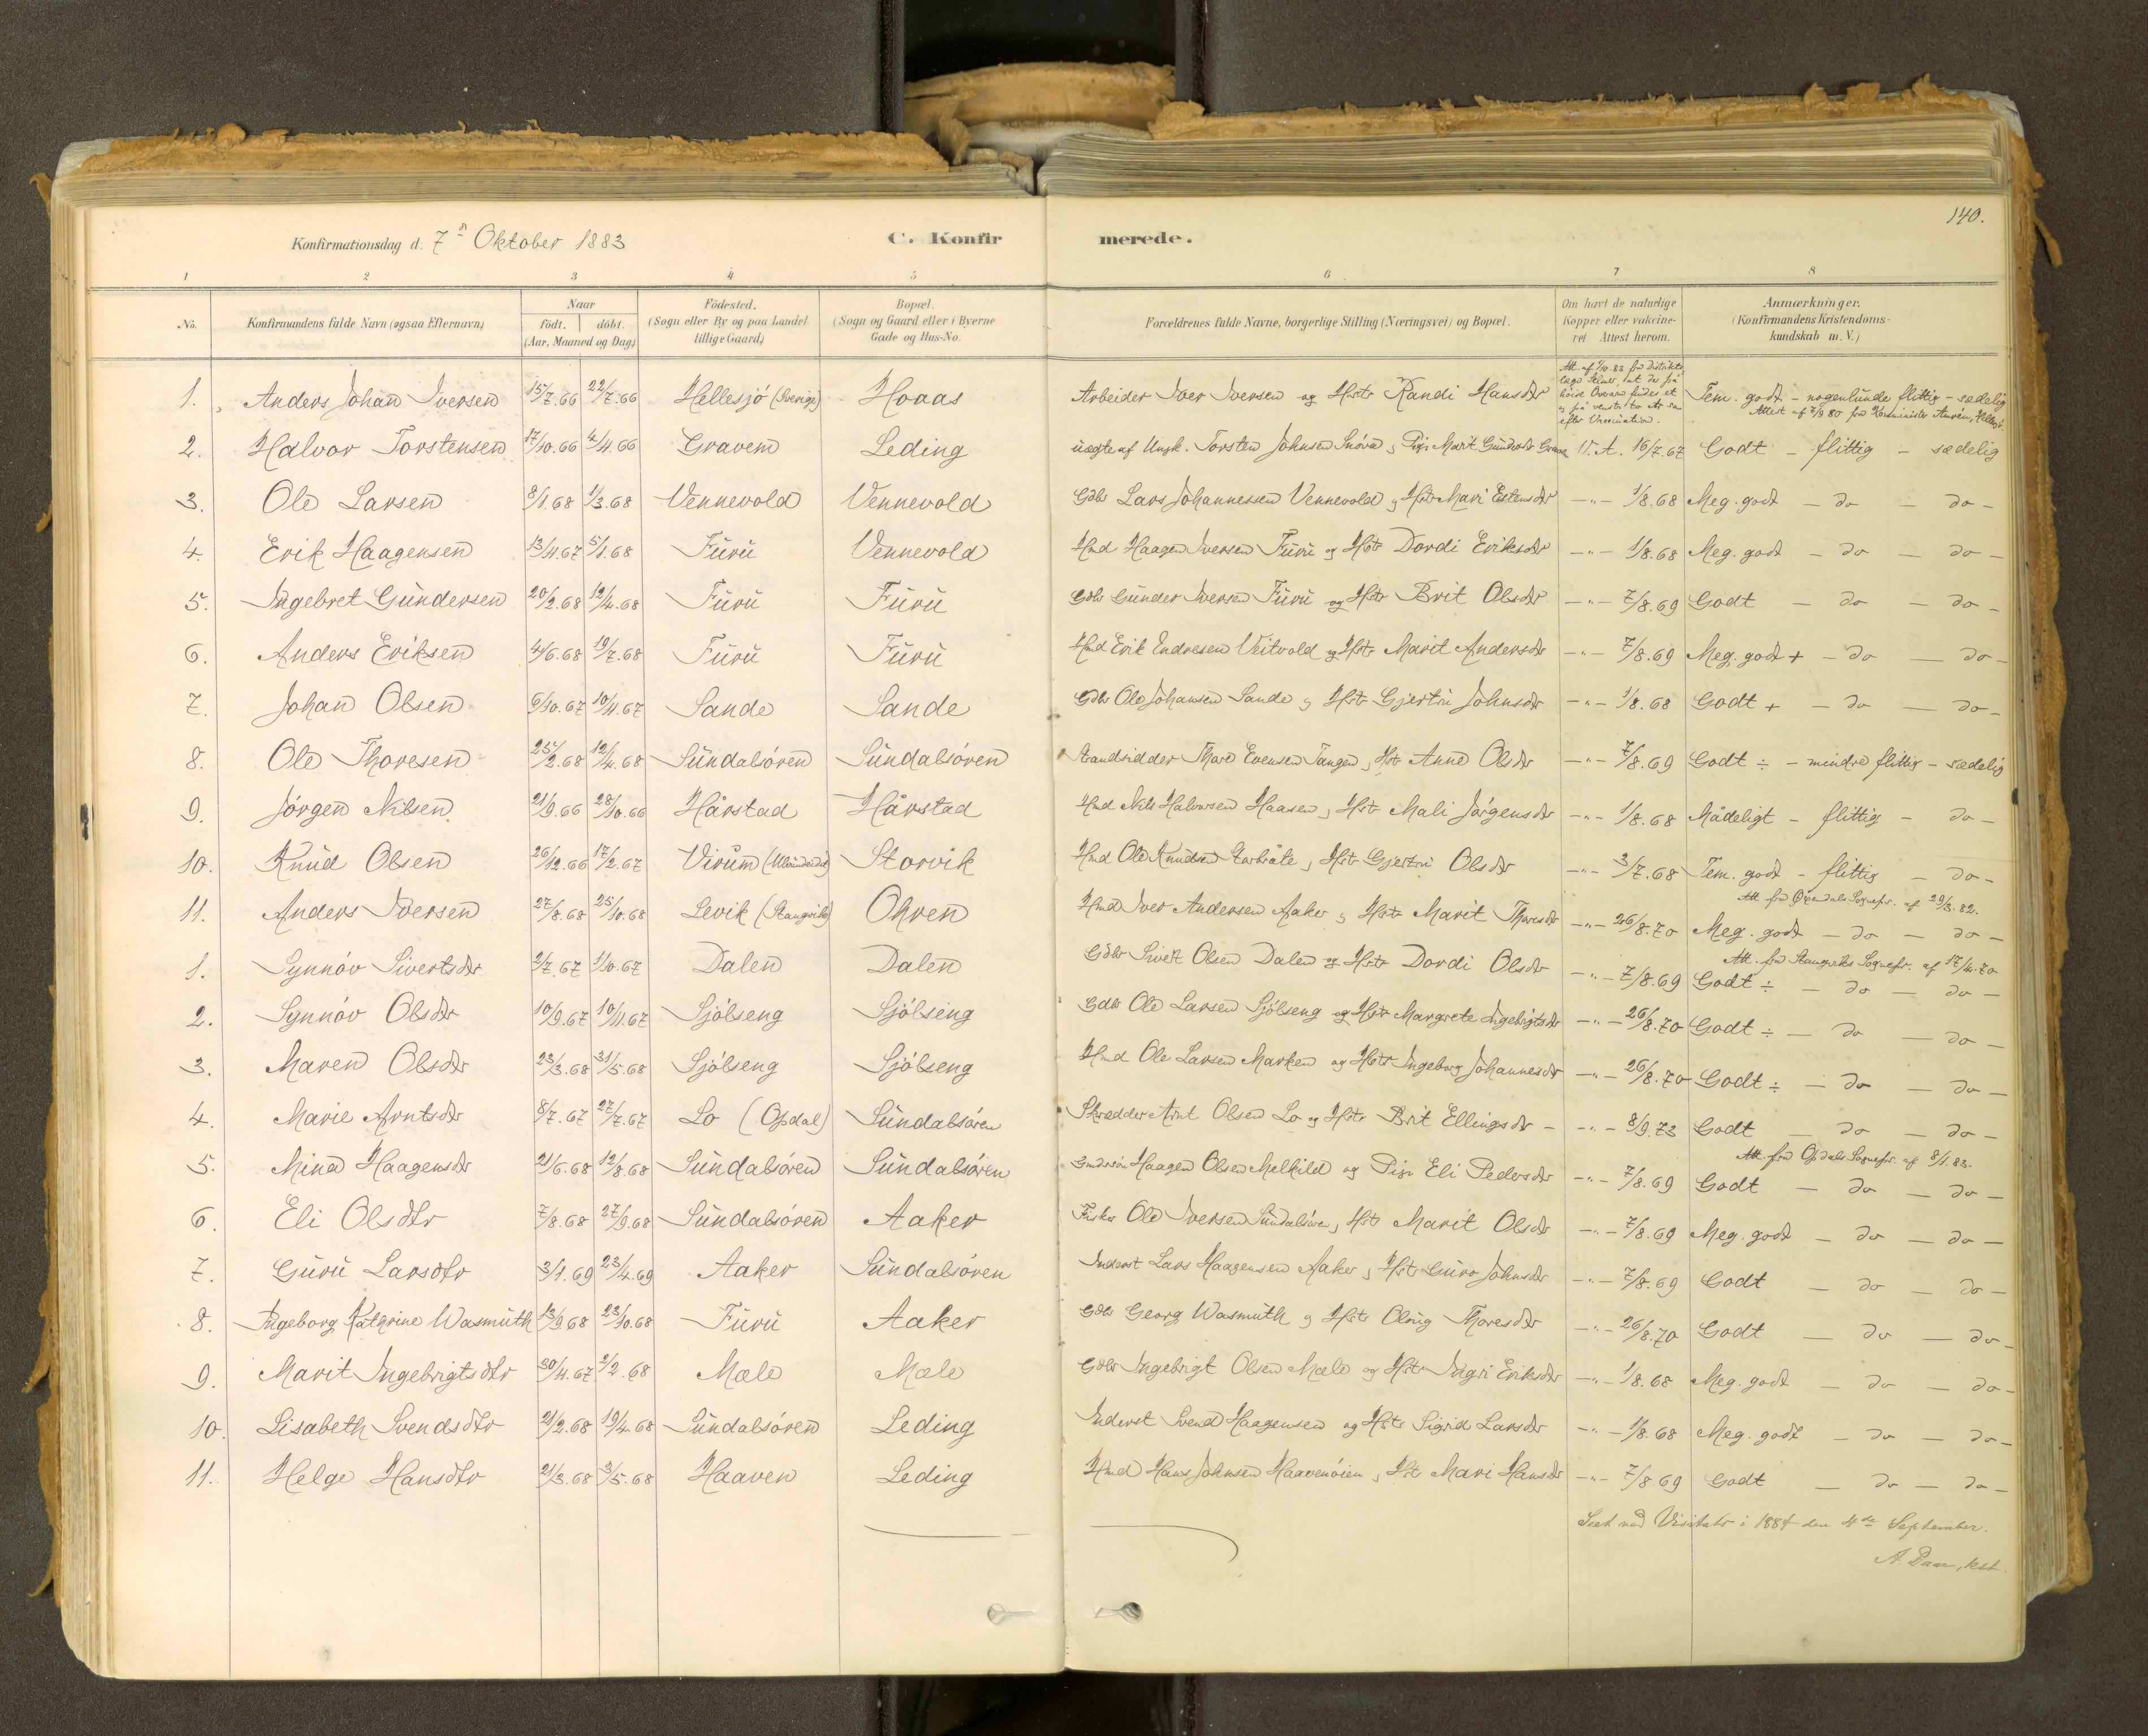 140.
Konfirmationsdag d. 7de Oktober 1883 C. Konfirmerede.
1 2 3 4 5 6 7 8
No. Konfirmandens fulde Navn (ogsaa Efternavn) Naar födt. döbt. (Aar, Maaned og Dag) Födested. (Sogn eller By og paa Landet tillige Gaard) Bopæl. (Sogn og Gaard eller i Byerne Gade og Hus-No. Forældrenes fulde Navne, borgerlige Stilling (Næringsvei) og Bopæl. Om havt de naturlige Kopper eller vakcineret Attest herom. Anmærkninger. (Konfirmandens Kristendomskundskab m. V.)
1. Anders Johan Iversen 15/7.66 22/7.66 Hellesjö (Sverige) Hoaas Arbeider Iver Iversen og Hstr Randi Hansdtr Att. af 1/10.83 fra Distriktslæge at der på höire Overarm findes et og på venstre to Ar efter Vaccination. Tem. godt - nogenlunde flittig - sædelig
Attest af 7/9 80 fra
2. Halvor Torstensen 17/10.66 4/4.66 Gravem Leding uægte af Ungk. Torsten Johnsen Snöva, Pige Marit Gundersdtr V. A. 16/7.67 Godt - flittig - sædelig
3. Ole Larsen 8/1.68 1/3.68 Vennevold Vennevold Gdbr Lars Johannessen Vennevold og Hstr Mari Estensdtr -"- 1/8.68 Meg. godt - do - do -
4. Erik Haagensen 13/11.67 5/1.68 Furu Vennevold Hmd Haagen Iversen Furu og Hstr Dordi Eriksdtr -"- 1/8.68 Meg. godt - do - do -
5. Ingebret Gundersen 20/2.68 12/4.68 Furu Furu Gdbr Gunder Iversen Furu og Hstr Brit Olsdtr -"- 7/8.69 Godt - do - do -
6. Anders Eriksen 4/6.68 19/7.68 Furu Furu Hmd Erik Endresen Veitvold og Hstr Marit Andersdtr -"- 7/8.69 Meg. godt + - do - do -
7. Johan Olsen 6/10.67 10/11.67 Sande Sande Gdbr Ole Johansen Sande og Hstr Gjertru Johnsdtr -"- 1/8.68 Godt + - do - do -
8. Ole Thoresen 25/2.68 12/4.68 Sundalsören Sundalsören Strandsidder Thore Evensen Tangen, Hstr Anne Olsdtr -"- 7/8.69 Godt ÷ - mindre flittig - sædelig
9. Jörgen Nilsen 21/9.66 28/10.66 Hårstad Hårstad Hmd Nils Halvorsen Haasen, Hstr Mali Jörgensdtr -"- 1/8.68 Mådeligt - flittig - do -
10. Knud Olsen 26/12.66 17/2.67 Virum Storvik Hmd Ole Knudsen Storbråte, Hstr Gjertru Olsdtr -"- 3/7.68 Tem. godt - flittig - do -
Att. fra Öxendals Sognepr. af 29/3.82.
11. Anders Iversen 27/8.68 25/10.68 Levik (Stangvik) Ohren Hmd Iver Andersen Aaker og Hstr Marit Thoresdtr -"- 26/8.70 Meg. godt - do - do -
Att. fra Stangviks Sognepr. af 17/4.70
1. Synnöv Sivertsdtr 2/7.67 1/10.67 Dalen Dalen Gdbr Sivert Olsen Dalen og Hstr Dordi Olsdtr -"- 7/8.69 Godt ÷ - do - do -
2. Synnöv Olsdtr 10/9.67 10/11.67 Sjölseng Sjölseng Gdbr Ole Larsen Sjölseng og Hstr Margrete Ingebrigtsdtr -"- 26/8.70 Godt ÷ - do - do -
3. Maren Olsdtr 23/3.68 31/5.68 Sjölseng Sjölseng Hmd Ole Larsen Marken og Hstr Ingeborg Johannesdtr -"- 26/8.70 Godt ÷ - do - do -
4. Marie Arntsdtr 8/7.67 27/7.67 Lo (Opdal) Sundalsören Skrædder Arnt Olsen Lo og Hstr Brit Ellingsdtr - -"- 8/9.73 Godt - do - do -
Att. fra Opdals Sognepr. af 8/1.83.
5. Mina Haagensdtr 21/6.68 12/8.68 Sundalsören Sundalsören Haagen Olsen Melkild og Pige Eli Pedersdtr -"- 7/8.69 Godt - do - do -
6. Eli Olsdtr 7/8.68 27/9.68 Sundalsören Aaker Fisker Ole Iversen Sundalsören, Hstr Marit Olsdtr -"- 7/8.69 Meg. godt - do - do -
7. Guru Larsdtr 3/1.69 23/4.69 Aaker Sundalsören Inderst Lars Haagensen Aaker, Hstr Guro Johnsdtr -"- 7/8.69 Godt - do - do -
8. Ingeborg Kathrine Wasmuth 13/9.68 23/10.68 Furu Aaker Gdbr Georg Wasmuth og Hstr Olöug Thoresdtr -"- 26/8.70 Godt - do - do -
9. Marit Ingebrigtsdtr 30/11.67 2/2.68 Mæle Mæle Gdbr Ingebrigt Olsen Mæle og Hstr Ingri Eriksdtr -"- 1/8.68 Meg. godt - do - do -
10. Lisabeth Svendsdtr 21/2.68 19/4.68 Sundalsören Leding Inderst Svend Haagensen og Hstr Sigrid Larsdtr -"- 1/8.68 Meg. godt - do - do -
11. Helge Hansdtr 21/3.68 3/5.68 Haaven Leding Hmd Hans Johnsen Haavenöien, Hstr Mari Hansdtr -"- 7/8.69 Godt - do - do -
Seet ved Visitats i 1884 den 4de September.
A. Daae, kst.